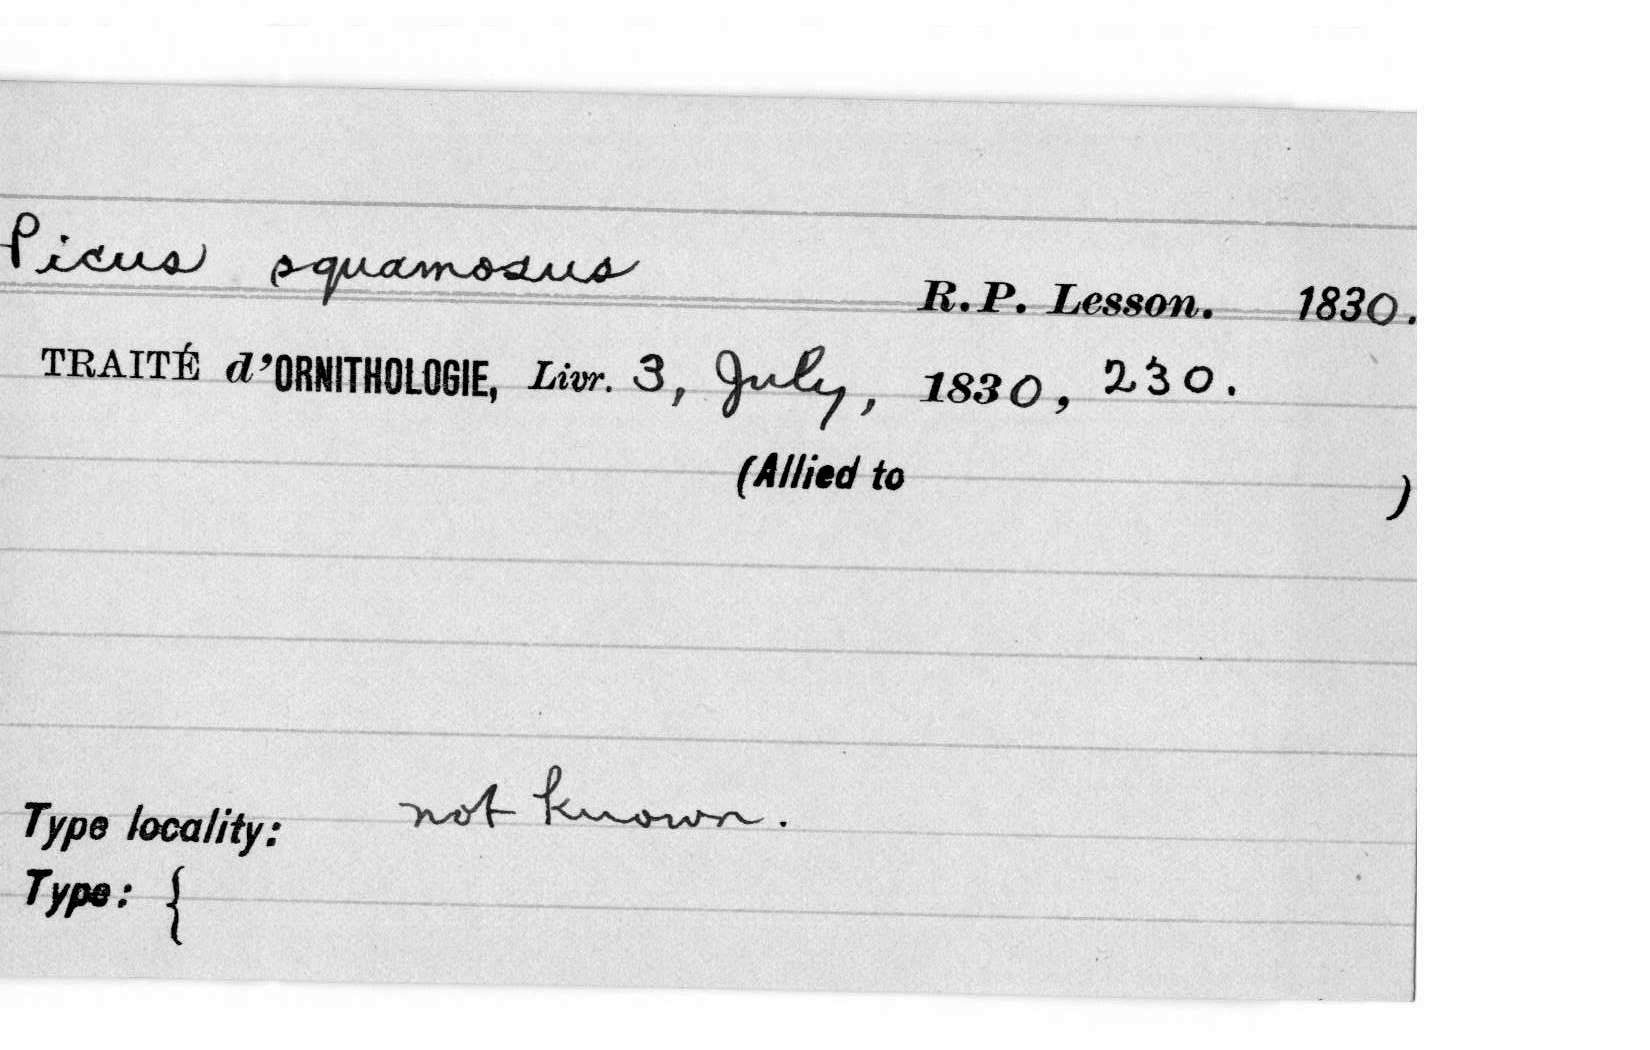 Picus squamosus R.P. Lesson. 1830.
TRAITÉ d'ORNITHOLOGIE, Livr. 3, July, 1830, 230.
(Allied to )
Type locality: not known.
Type: {